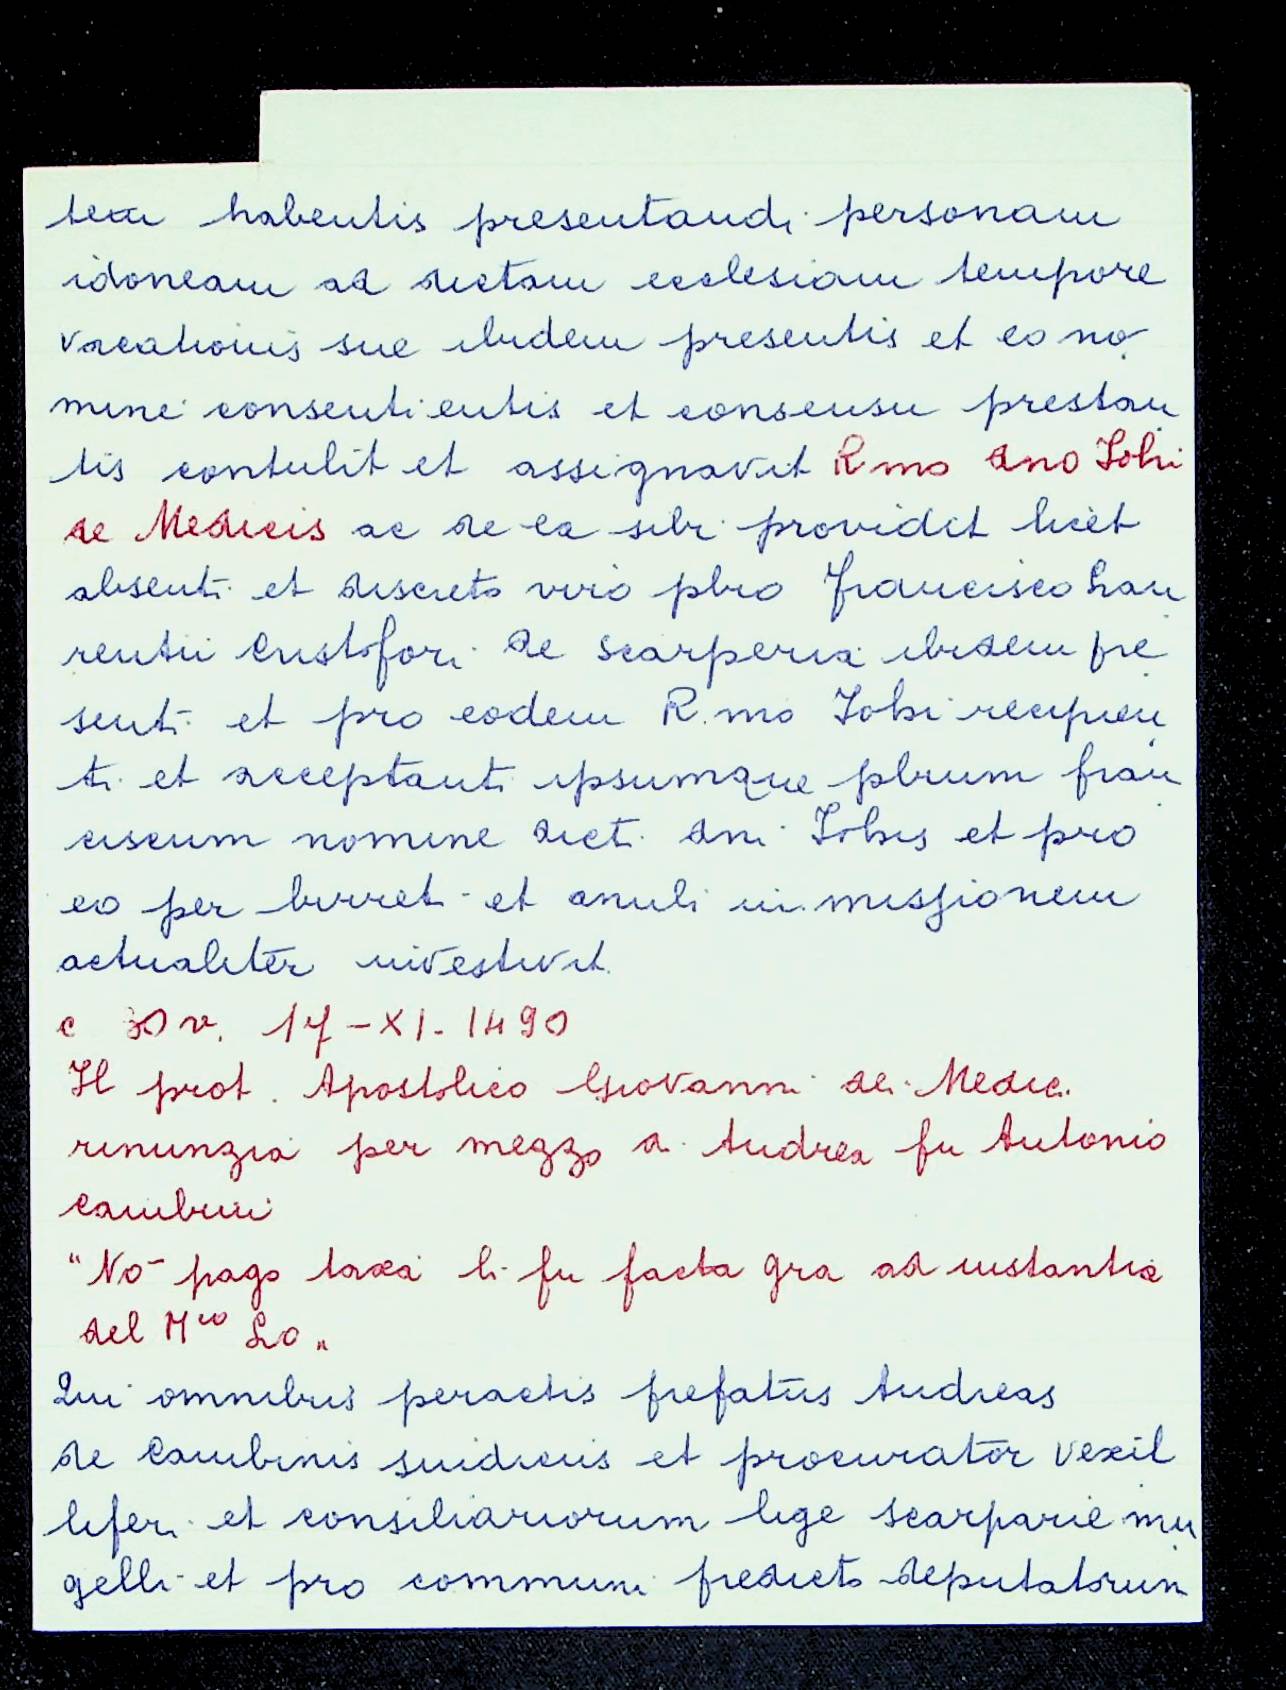 habentis presentandi personam
idoneam ad dictam ecclesiam tempore
vacationis sue ibidem presentis et eo no
mine consentientis et consensu prestan
tis contulit et assignavit R mo dno Iohi
de Medicis ac de ea sibi providit licet
absenti et discreto viro pbro Francisco Lau
rentii Cristofori de Scarperia ibidem pre
senti et pro eodem R. mo Iohi recipien
ti et acceptanti ipsumque pbrum fran
ciscum nomine dicti dni Iohis et pro
eo per birreti et anuli in missionem
actualiter investivit.
c 30 v. 17-XI-1490
Il prot. Apostolico Giovanni dei Medici
rinunzia per mezzo di Andrea fu Antonio
Cambini
"No pago taxa li fu facta gra ad instantia
del Mco Lo"
Qui omnibus peractis prefatus Andreas
de Cambinis sindicus et procurator vexil
liferi et consiliariorum lige scarparie mu
gelli et pro communi predicto deputatorum